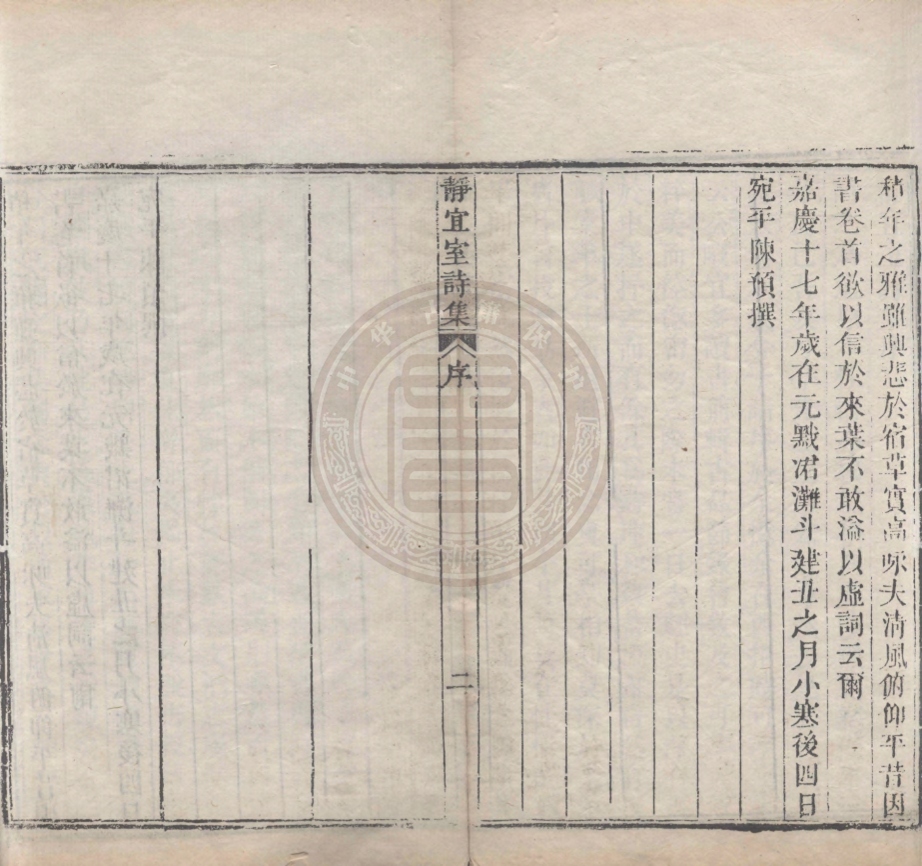 積年之雅雖興悲於宿草實高咏夫淸風俯仰平昔因
書卷首欲以信於來葉不敢溢以虛詞云爾
嘉慶十七年歲在元黓涒灘斗建丑之月小寒後四日
宛平陳預撰
靜宜室詩集 序 二